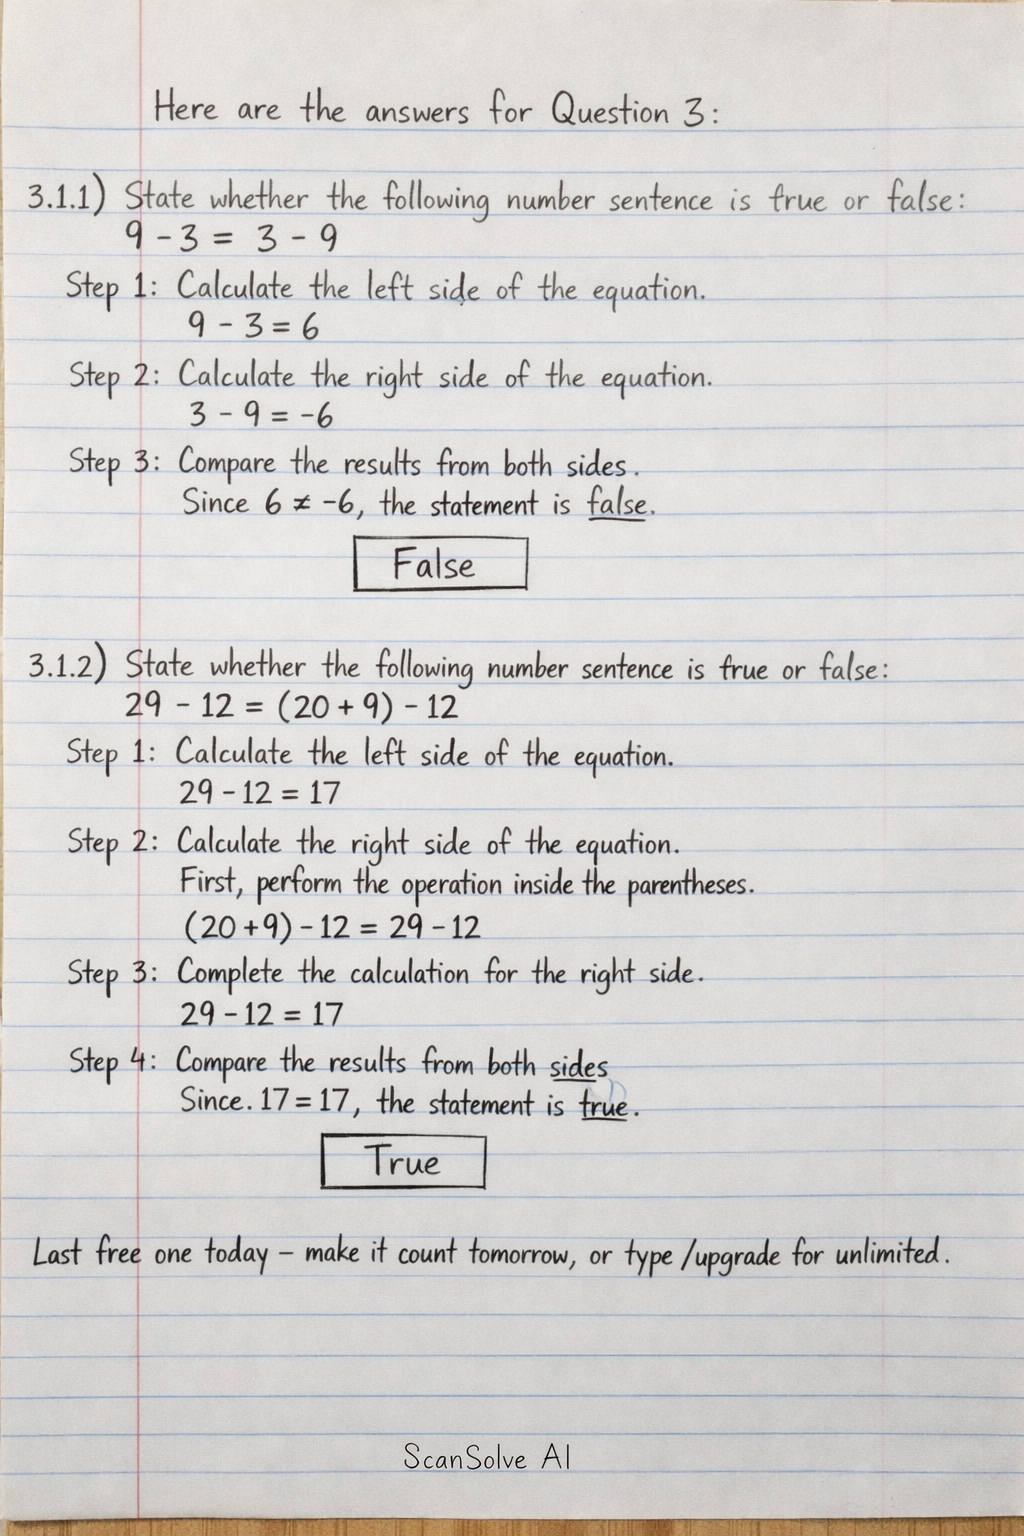 Here are the answers for Question 3:
3.1.1) State whether the following number sentence is true or false:
9 - 3 = 3 - 9
Step 1: Calculate the left side of the equation.
9 - 3 = 6
Step 2: Calculate the right side of the equation.
3 - 9 = -6
Step 3: Compare the results from both sides.
Since 6 ≠ -6, the statement is false.
False
3.1.2) State whether the following number sentence is true or false:
29 - 12 = (20 + 9) - 12
Step 1: Calculate the left side of the equation.
29 - 12 = 17
Step 2: Calculate the right side of the equation.
First, perform the operation inside the parentheses.
(20 + 9) - 12 = 29 - 12
Step 3: Complete the calculation for the right side.
29 - 12 = 17
Step 4: Compare the results from both sides
Since. 17 = 17, the statement is true.
True
Last free one today – make it count tomorrow, or type /upgrade for unlimited.
ScanSolve AI